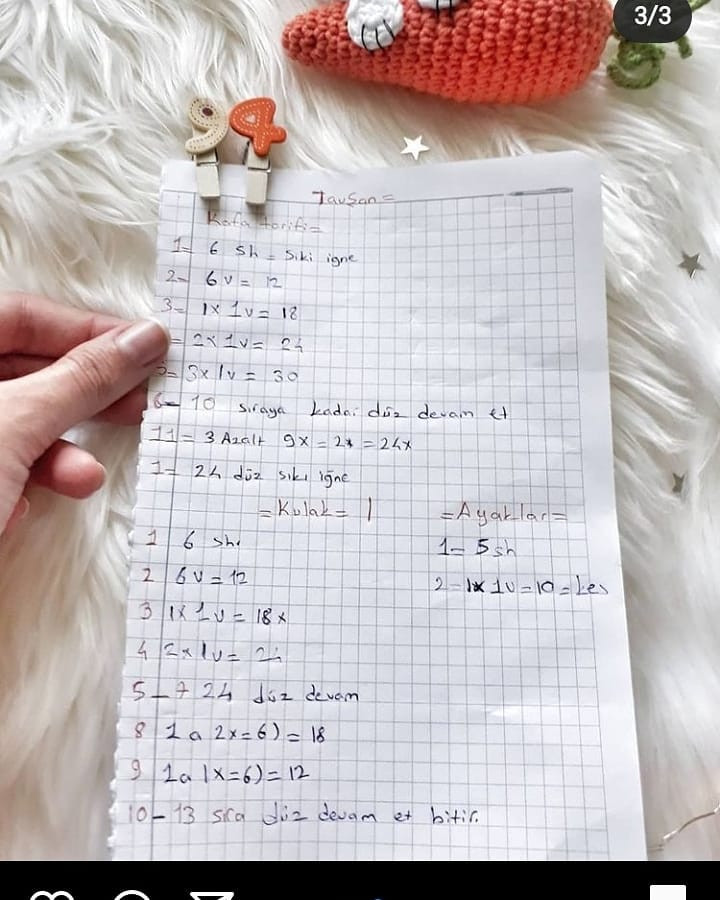 3/3
94
Tavşan =
Kafa tarifi =
1= 6 sh = Sıki igne
2= 6v = 12
3= 1x 1v = 18
= 2x 1v = 24
5= 3x 1v = 30
6= 10 sıraya kadar düz devam et
11= 3 Azalt 9x = 2x = 24x
1= 24 düz sıkı iğne
= Kulak = 1
1 6 sh.
2 6v = 12
3 1x 1v = 18x
4 2x 1v = 24
5-7 24 düz devam
8 1a 2x=6) = 18
9 1a 1x=6) = 12
10-13 sıra düz devam et bitir.
= Ayaklar =
1= 5sh
2= 1x 1v = 10 = kes